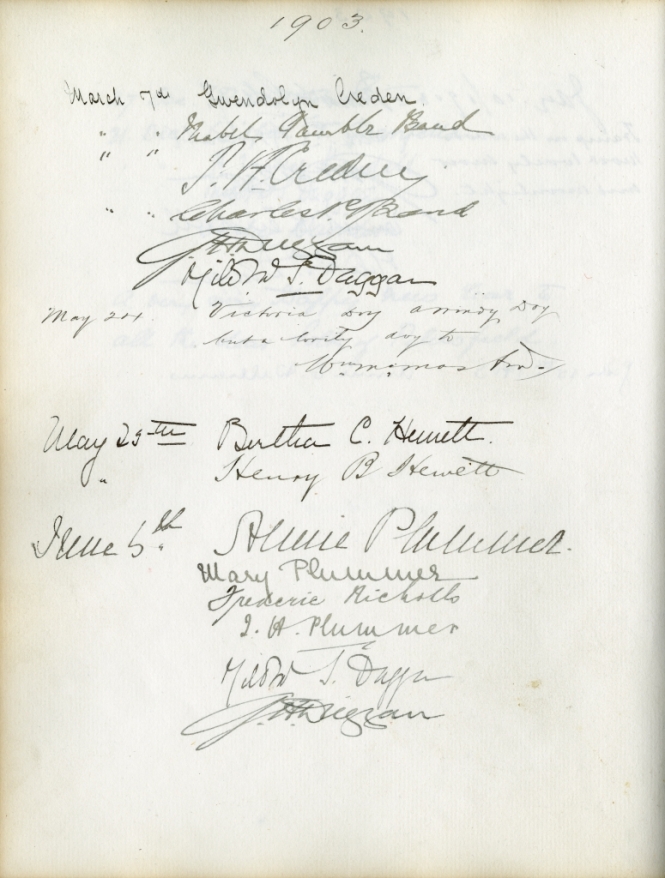 1903.
March 7th Gwendolyn Creden.
" " Mabel Band
" "
" " Charles P. Band
G. H. Duggan
Mildred S. Duggan
May 24. Victoria Day a windy Day
but a lovely day to
May 25th Bertha C. Hewett.
" Henry B Hewett
June 5th. Annie Plummer.
Mary Plummer
Frederic Nicholls
J. H. Plummer
Mildred S. Duggan
G. H. Duggan